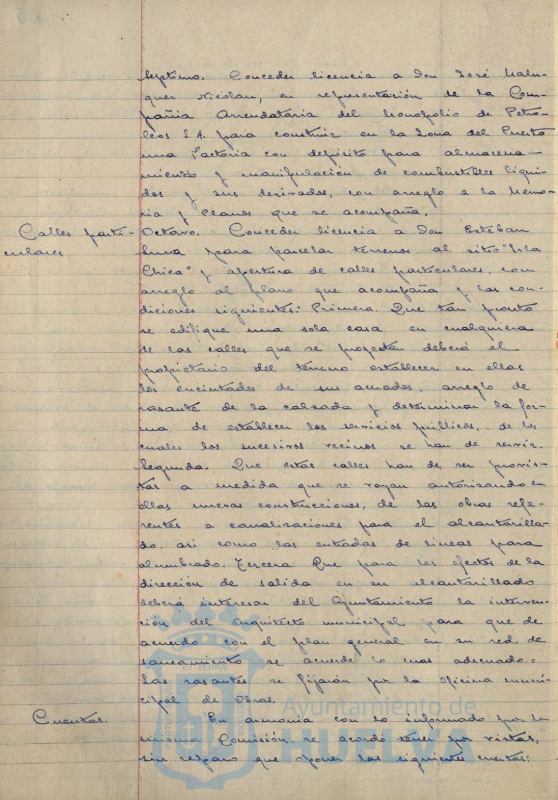 Septimo. Conceder licencia a Don José Malu-
quer Nicolau, en representación de la Com-
pañia Arrendataria del Monopolio de Petro-
leos S.A. para construir en la Zona del Puerto
una Factoria con depósito para almacena-
miento y manipulación de combustibles líqui-
dos y sus derivados, con arreglo a la Memo-
ria y Planos que se acompaña.
Calles parti-
culares.
Octavo. Conceder licencia a Don Esteban
para parcelar terrenos al sitio "Isla
Chica" y apertura de calles particulares, con
arreglo al plano que acompaña y las con-
diciones siguientes: Primera. Que tan pronto
se edifique una sola casa en cualquiera
de las calles que se proyectan deberá el
propietario del terreno establecer en ellas
los encintados de sus acerados, arreglo de
rasante de la calzada y determinar la for-
ma de establecer los servicios públicos, de los
cuales los sucesivos vecinos se han de servir.
Segunda. Que estas calles han de ser provis-
tas a medida que se vayan autorizando en
ellas nuevas construcciones, de las obras refe-
rentes a canalizaciones para el alcantarilla-
do. asi como las entradas de lineas para
alumbrado. Tercera Que para los efectos de la
dirección de salida en su alcantarillado
deberá interesar del Ayuntamiento la interven-
ción del Arquitecto municipal, para que de
acuerdo con el plan general en su red de
saneamiento se acuerde lo mas adecuado.=
Las rasantes se fijarán por la oficina muni-
cipal de Obras.
Cuentas.
En armonia con lo informado por la
misma Comisión, se acordó tener por vistas,
sin reparo que oponer las siguientes cuentas:
Ayuntamiento de
HUELVA